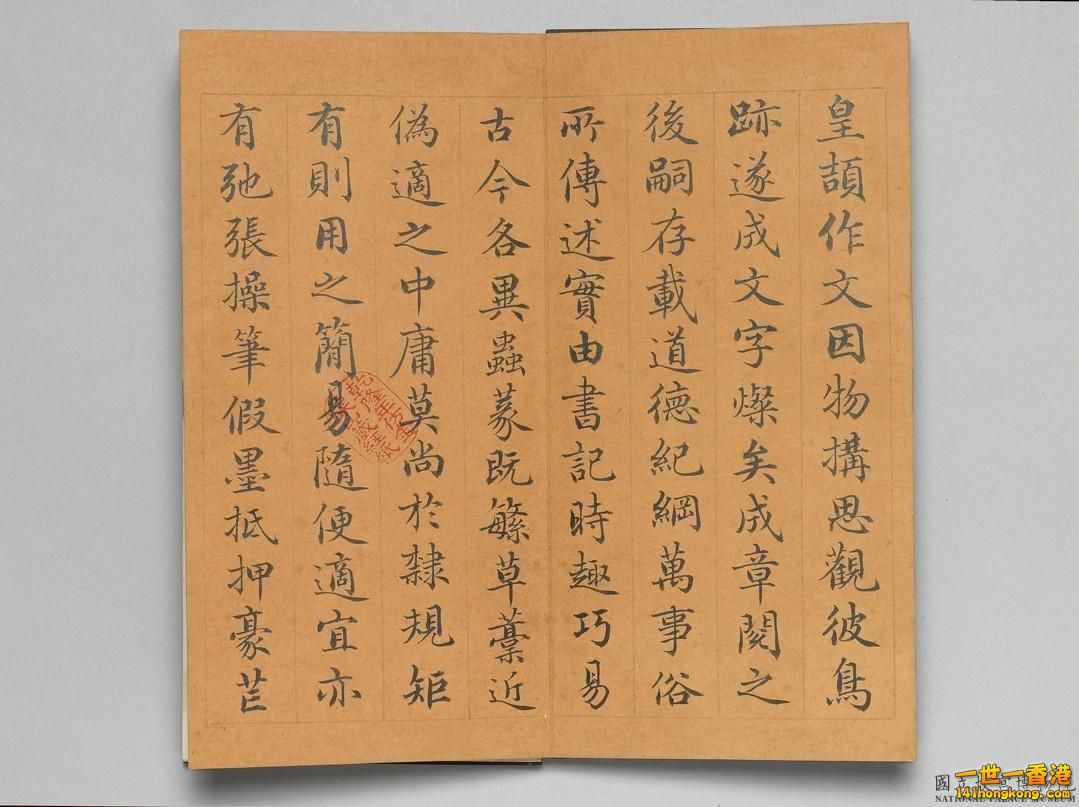 皇頡作文因物構思觀彼鳥
跡遂成文字燦矣成章閱之
後嗣存載道德紀綱萬事俗
所傳述實由書記時趣巧易
古今各異蟲篆既繁草藁近
偽適之中庸莫尚於隸規矩
有則用之簡易隨便適宜亦
有弛張操筆假墨抵押豪芒
乾隆年仿金粟山藏經紙
一世一香港
141hongkong.com